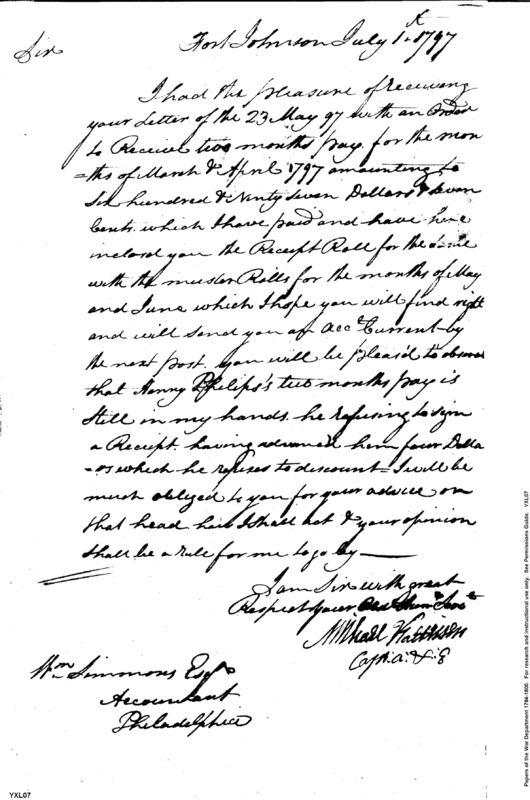 Fort Johnson July 1st 1797
Sir
I had the pleasure of receiving
your Letter of the 23 May 97 with an Order
to Receive two months pay for the mon
=ths of March & April 1797 amounting to
Six hundred & Ninty Seven Dollars & Seven
Cents. which I have paid and have here
inclosed you the Receipt Roll for the Same
with the muster Rolls for the months of May
and June which I hope you will find right
and will send you an acct Current by
the next post. you will be pleas'd to observe
that Henry Philips's two months pay is
Still in my hands. he refusing to sign
a Receipt. having advanced him four Dolla
=rs which he refuses to discount = I will be
much obliged to you for your advice on
that head how I shall act & your opinion
shall be a rule for me to go by
I am Sir with great
Respect your Humb Servt
Michael Kalteisen
Capt. A. & E
Wm Simmons Esqr
Accountant
Philadelphia
YXL07
Papers of the War Department 1784-1800. For research and instructional use only. See Permissions Guide. YXL07